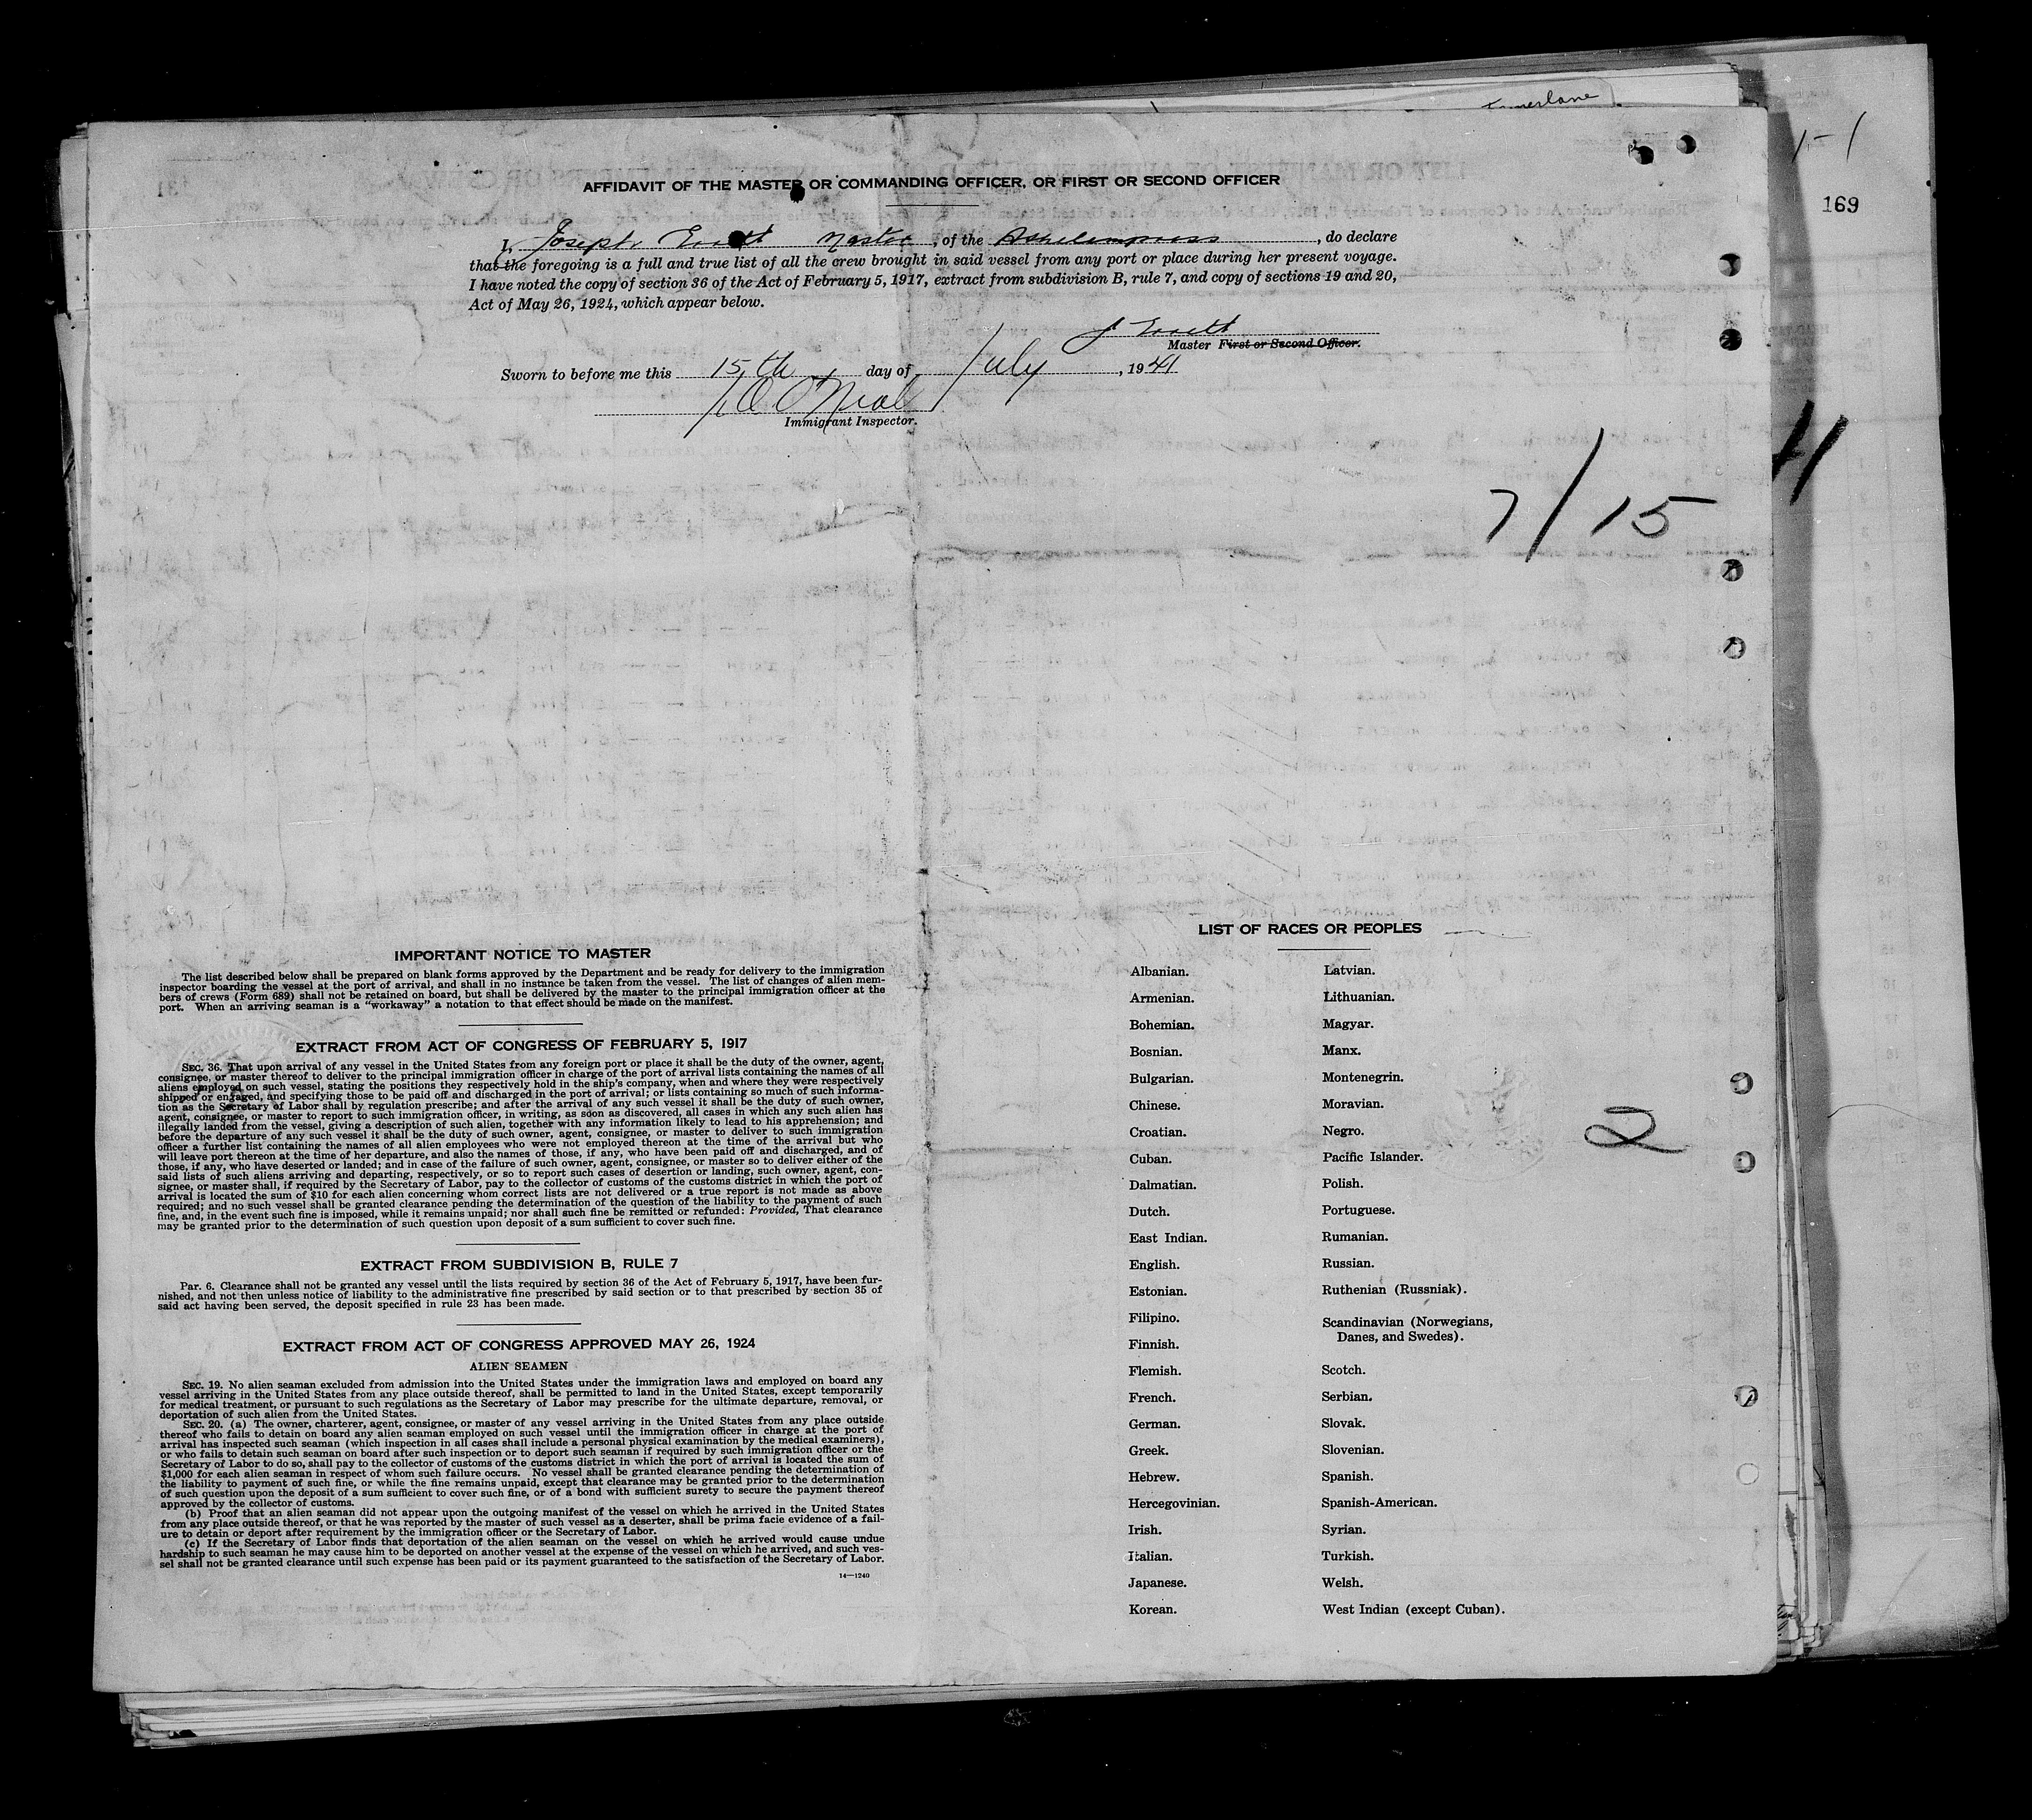 AFFIDAVIT OF THE MASTER OR COMMANDING OFFICER, OR FIRST OR SECOND OFFICER
I, Joseph Master, of the , do declare
that the foregoing is a full and true list of all the crew brought in said vessel from any port or place during her present voyage.
I have noted the copy of section 36 of the Act of February 5, 1917, extract from subdivision B, rule 7, and copy of sections 19 and 20,
Act of May 26, 1924, which appear below.
J
Master First or Second Officer.
Sworn to before me this 15th day of July, 1941
O'Neal
Immigrant Inspector.
169
7/15
IMPORTANT NOTICE TO MASTER
The list described below shall be prepared on blank forms approved by the Department and be ready for delivery to the immigration
inspector boarding the vessel at the port of arrival, and shall in no instance be taken from the vessel. The list of changes of alien mem-
bers of crews (Form 689) shall not be retained on board, but shall be delivered by the master to the principal immigration officer at the
port. When an arriving seaman is a "workaway" a notation to that effect should be made on the manifest.
EXTRACT FROM ACT OF CONGRESS OF FEBRUARY 5, 1917
SEC. 36. That upon arrival of any vessel in the United States from any foreign port or place it shall be the duty of the owner, agent,
consignee, or master thereof to deliver to the principal immigration officer in charge of the port of arrival lists containing the names of all
aliens employed on such vessel, stating the positions they respectively hold in the ship's company, when and where they were respectively
shipped or engaged, and specifying those to be paid off and discharged in the port of arrival; or lists containing so much of such informa-
tion as the Secretary of Labor shall by regulation prescribe; and after the arrival of any such vessel it shall be the duty of such owner,
agent, consignee, or master to report to such immigration officer, in writing, as soon as discovered, all cases in which any such alien has
illegally landed from the vessel, giving a description of such alien, together with any information likely to lead to his apprehension; and
before the departure of any such vessel it shall be the duty of such owner, agent, consignee, or master to deliver to such immigration
officer a further list containing the names of all alien employees who were not employed thereon at the time of the arrival but who
will leave port thereon at the time of her departure, and also the names of those, if any, who have been paid off and discharged, and of
those, if any, who have deserted or landed; and in case of the failure of such owner, agent, consignee, or master so to deliver either of the
said lists of such aliens arriving and departing, respectively, or so to report such cases of desertion or landing, such owner, agent, con-
signee, or master shall, if required by the Secretary of Labor, pay to the collector of customs of the customs district in which the port of
arrival is located the sum of $10 for each alien concerning whom correct lists are not delivered or a true report is not made as above
required; and no such vessel shall be granted clearance pending the determination of the question of the liability to the payment of such
fine, and, in the event such fine is imposed, while it remains unpaid; nor shall such fine be remitted or refunded: Provided, That clearance
may be granted prior to the determination of such question upon deposit of a sum sufficient to cover such fine.
EXTRACT FROM SUBDIVISION B, RULE 7
Par. 6. Clearance shall not be granted any vessel until the lists required by section 36 of the Act of February 5, 1917, have been fur-
nished, and not then unless notice of liability to the administrative fine prescribed by said section or to that prescribed by section 35 of
said act having been served, the deposit specified in rule 23 has been made.
EXTRACT FROM ACT OF CONGRESS APPROVED MAY 26, 1924
ALIEN SEAMEN
SEC. 19. No alien seaman excluded from admission into the United States under the immigration laws and employed on board any
vessel arriving in the United States from any place outside thereof, shall be permitted to land in the United States, except temporarily
for medical treatment, or pursuant to such regulations as the Secretary of Labor may prescribe for the ultimate departure, removal, or
deportation of such alien from the United States.
SEC. 20. (a) The owner, charterer, agent, consignee, or master of any vessel arriving in the United States from any place outside
thereof who fails to detain on board any alien seaman employed on such vessel until the immigration officer in charge at the port of
arrival has inspected such seaman (which inspection in all cases shall include a personal physical examination by the medical examiners),
or who fails to detain such seaman on board after such inspection or to deport such seaman if required by such immigration officer or the
Secretary of Labor to do so, shall pay to the collector of customs of the customs district in which the port of arrival is located the sum of
$1,000 for each alien seaman in respect of whom such failure occurs. No vessel shall be granted clearance pending the determination of
the liability to payment of such fine, or while the fine remains unpaid, except that clearance may be granted prior to the determination
of such question upon the deposit of a sum sufficient to cover such fine, or of a bond with sufficient surety to secure the payment thereof
approved by the collector of customs.
(b) Proof that an alien seaman did not appear upon the outgoing manifest of the vessel on which he arrived in the United States
from any place outside thereof, or that he was reported by the master of such vessel as a deserter, shall be prima facie evidence of a fail-
ure to detain or deport after requirement by the immigration officer or the Secretary of Labor.
(c) If the Secretary of Labor finds that deportation of the alien seaman on the vessel on which he arrived would cause undue
hardship to such seaman he may cause him to be deported on another vessel at the expense of the vessel on which he arrived, and such ves-
sel shall not be granted clearance until such expense has been paid or its payment guaranteed to the satisfaction of the Secretary of Labor.
14—1240
LIST OF RACES OR PEOPLES
Albanian.
Armenian.
Bohemian.
Bosnian.
Bulgarian.
Chinese.
Croatian.
Cuban.
Dalmatian.
Dutch.
East Indian.
English.
Estonian.
Filipino.
Finnish.
Flemish.
French.
German.
Greek.
Hebrew.
Hercegovinian.
Irish.
Italian.
Japanese.
Korean.
Latvian.
Lithuanian.
Magyar.
Manx.
Montenegrin.
Moravian.
Negro.
Pacific Islander.
Polish.
Portuguese.
Rumanian.
Russian.
Ruthenian (Russniak).
Scandinavian (Norwegians,
Danes, and Swedes).
Scotch.
Serbian.
Slovak.
Slovenian.
Spanish.
Spanish-American.
Syrian.
Turkish.
Welsh.
West Indian (except Cuban).